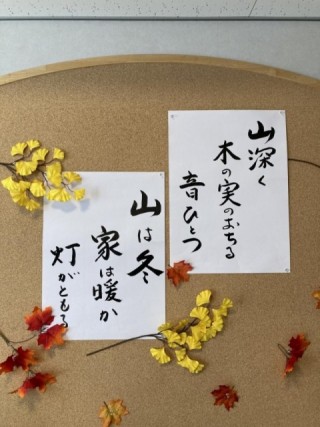 山深く
木の実のおちる
音ひとつ
山は冬
家は暖か
灯がともる